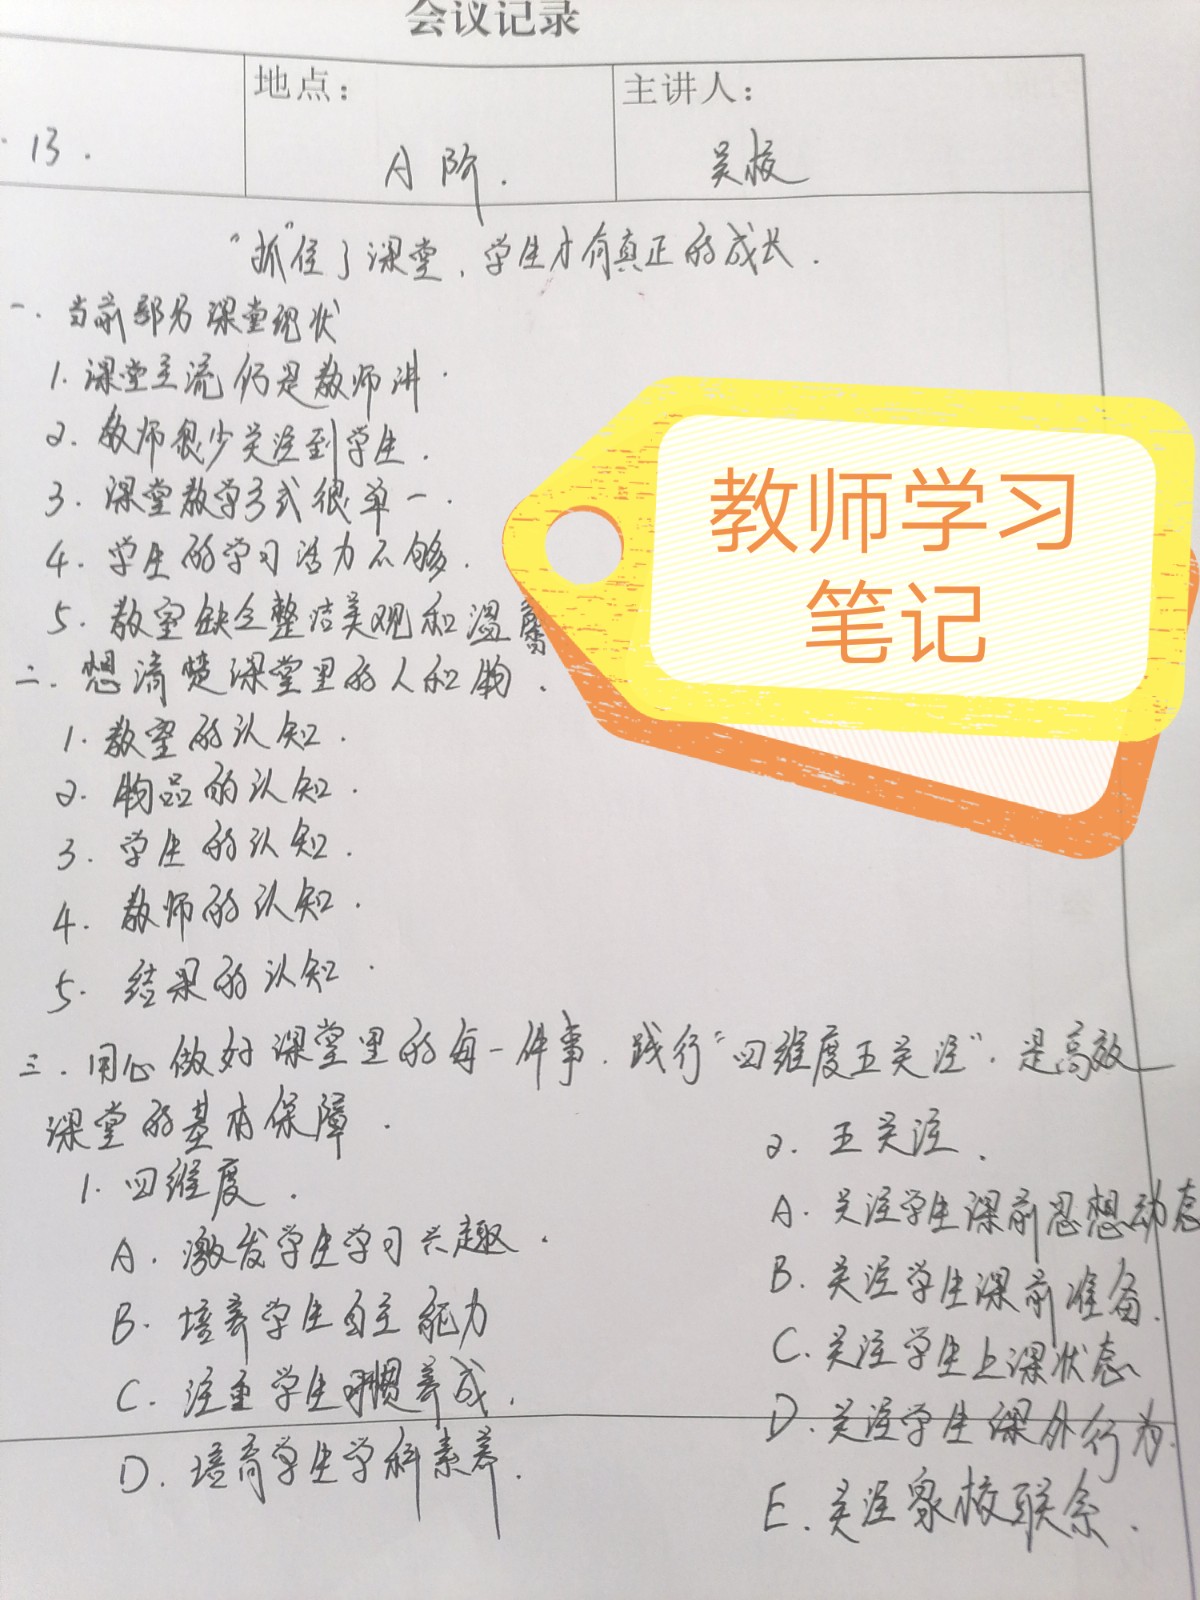 会议记录
地点：
主讲人：
·13.
A阶.
吴校
“抓”住了课堂，学生才有真正的成长.
一. 当前部分课堂现状
1. 课堂主流仍是教师讲.
2. 教师很少关注到学生.
3. 课堂教学方式很单一.
4. 学生的学习活力不够.
5. 教室缺乏整洁美观和温馨
教师学习
笔记
二. 想清楚课堂里的人和物.
1. 教室的认知.
2. 物品的认知.
3. 学生的认知.
4. 教师的认知.
5. 结果的认知.
三. 用心做好课堂里的每一件事. 践行“四维度五关注”. 是高效
课堂的基本保障.
1. 四维度.
A. 激发学生学习兴趣.
B. 培养学生自主能力
C. 注重学生习惯养成.
D. 培育学生学科素养.
2. 五关注.
A. 关注学生课前思想动态
B. 关注学生课前准备.
C. 关注学生上课状态.
D. 关注学生课外行为.
E. 关注家校联系.